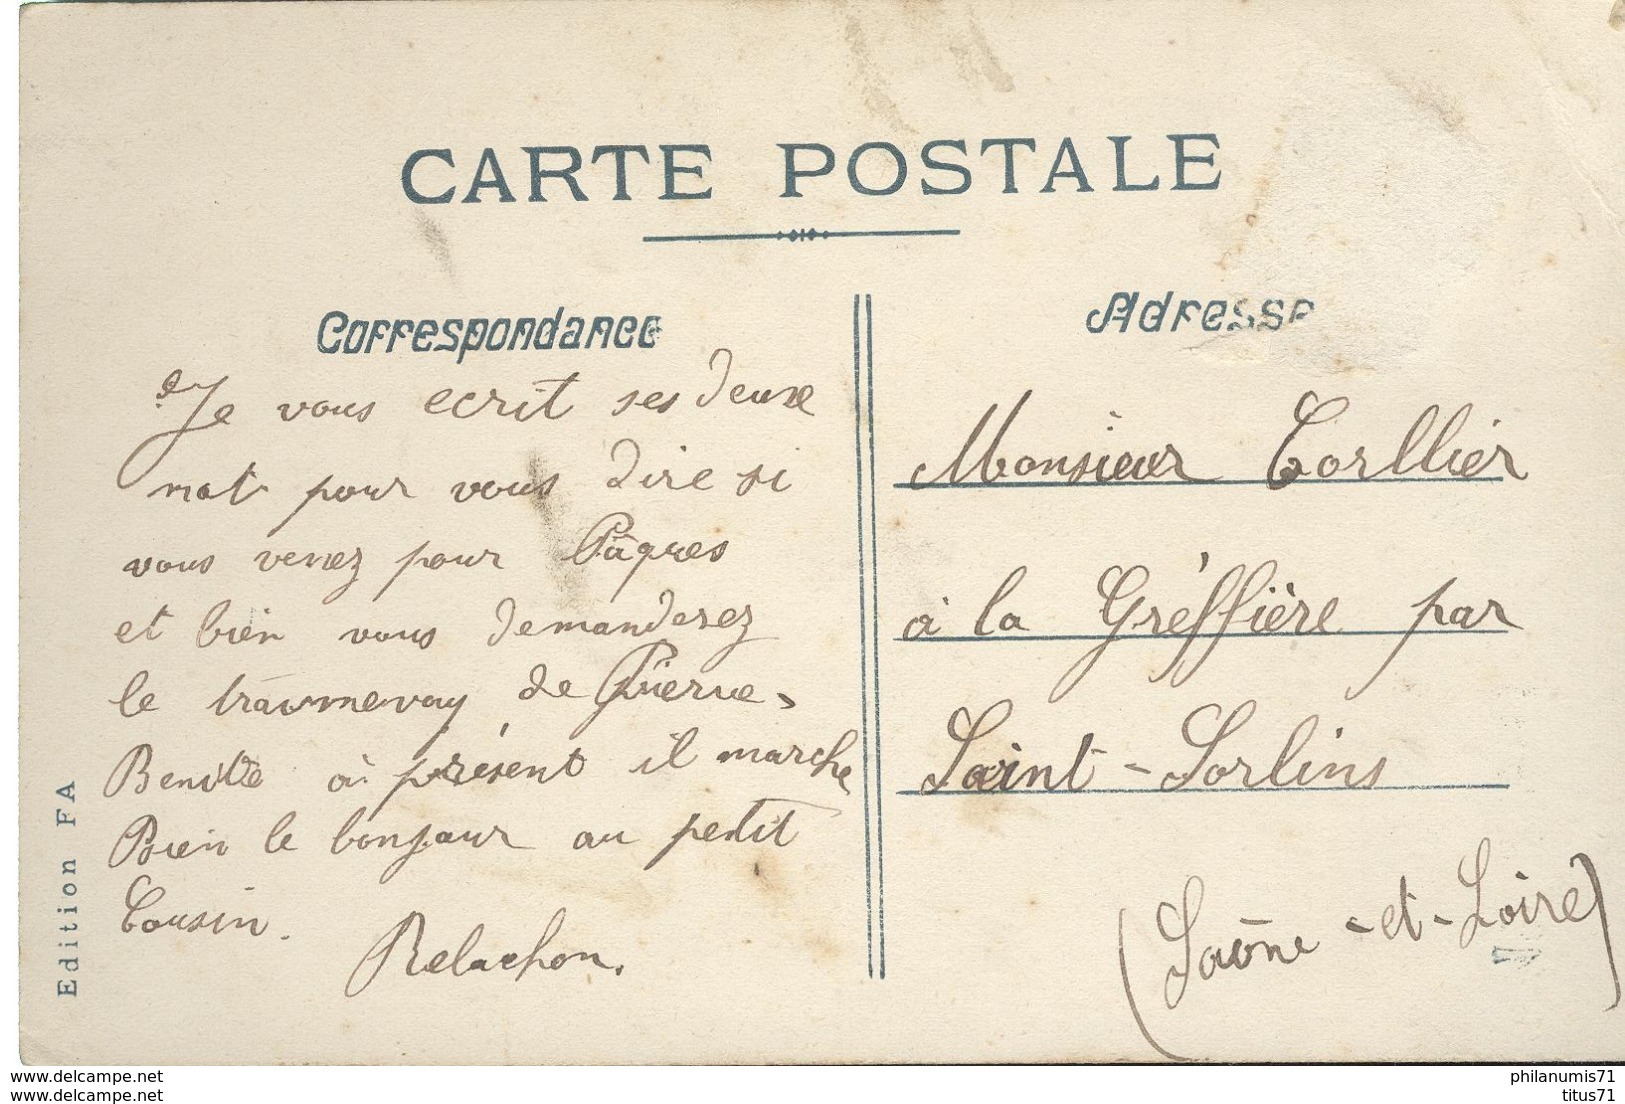 CARTE POSTALE
Correspondance
Je vous ecrit ses deux
mot pour vous dire si
vous venez pour Pâques
et bien vous demanderez
le de Pierre-
Benite à présent il marche
Bien le bonjour au petit
Cousin.
Relachon.
Edition FA
Adresse
Monsieur Corllier
à la Gréffière par
Saint-Sorlins
(Saône-et-Loire)
www.delcampe.net
www.delcampe.net
philanumis71
titus71